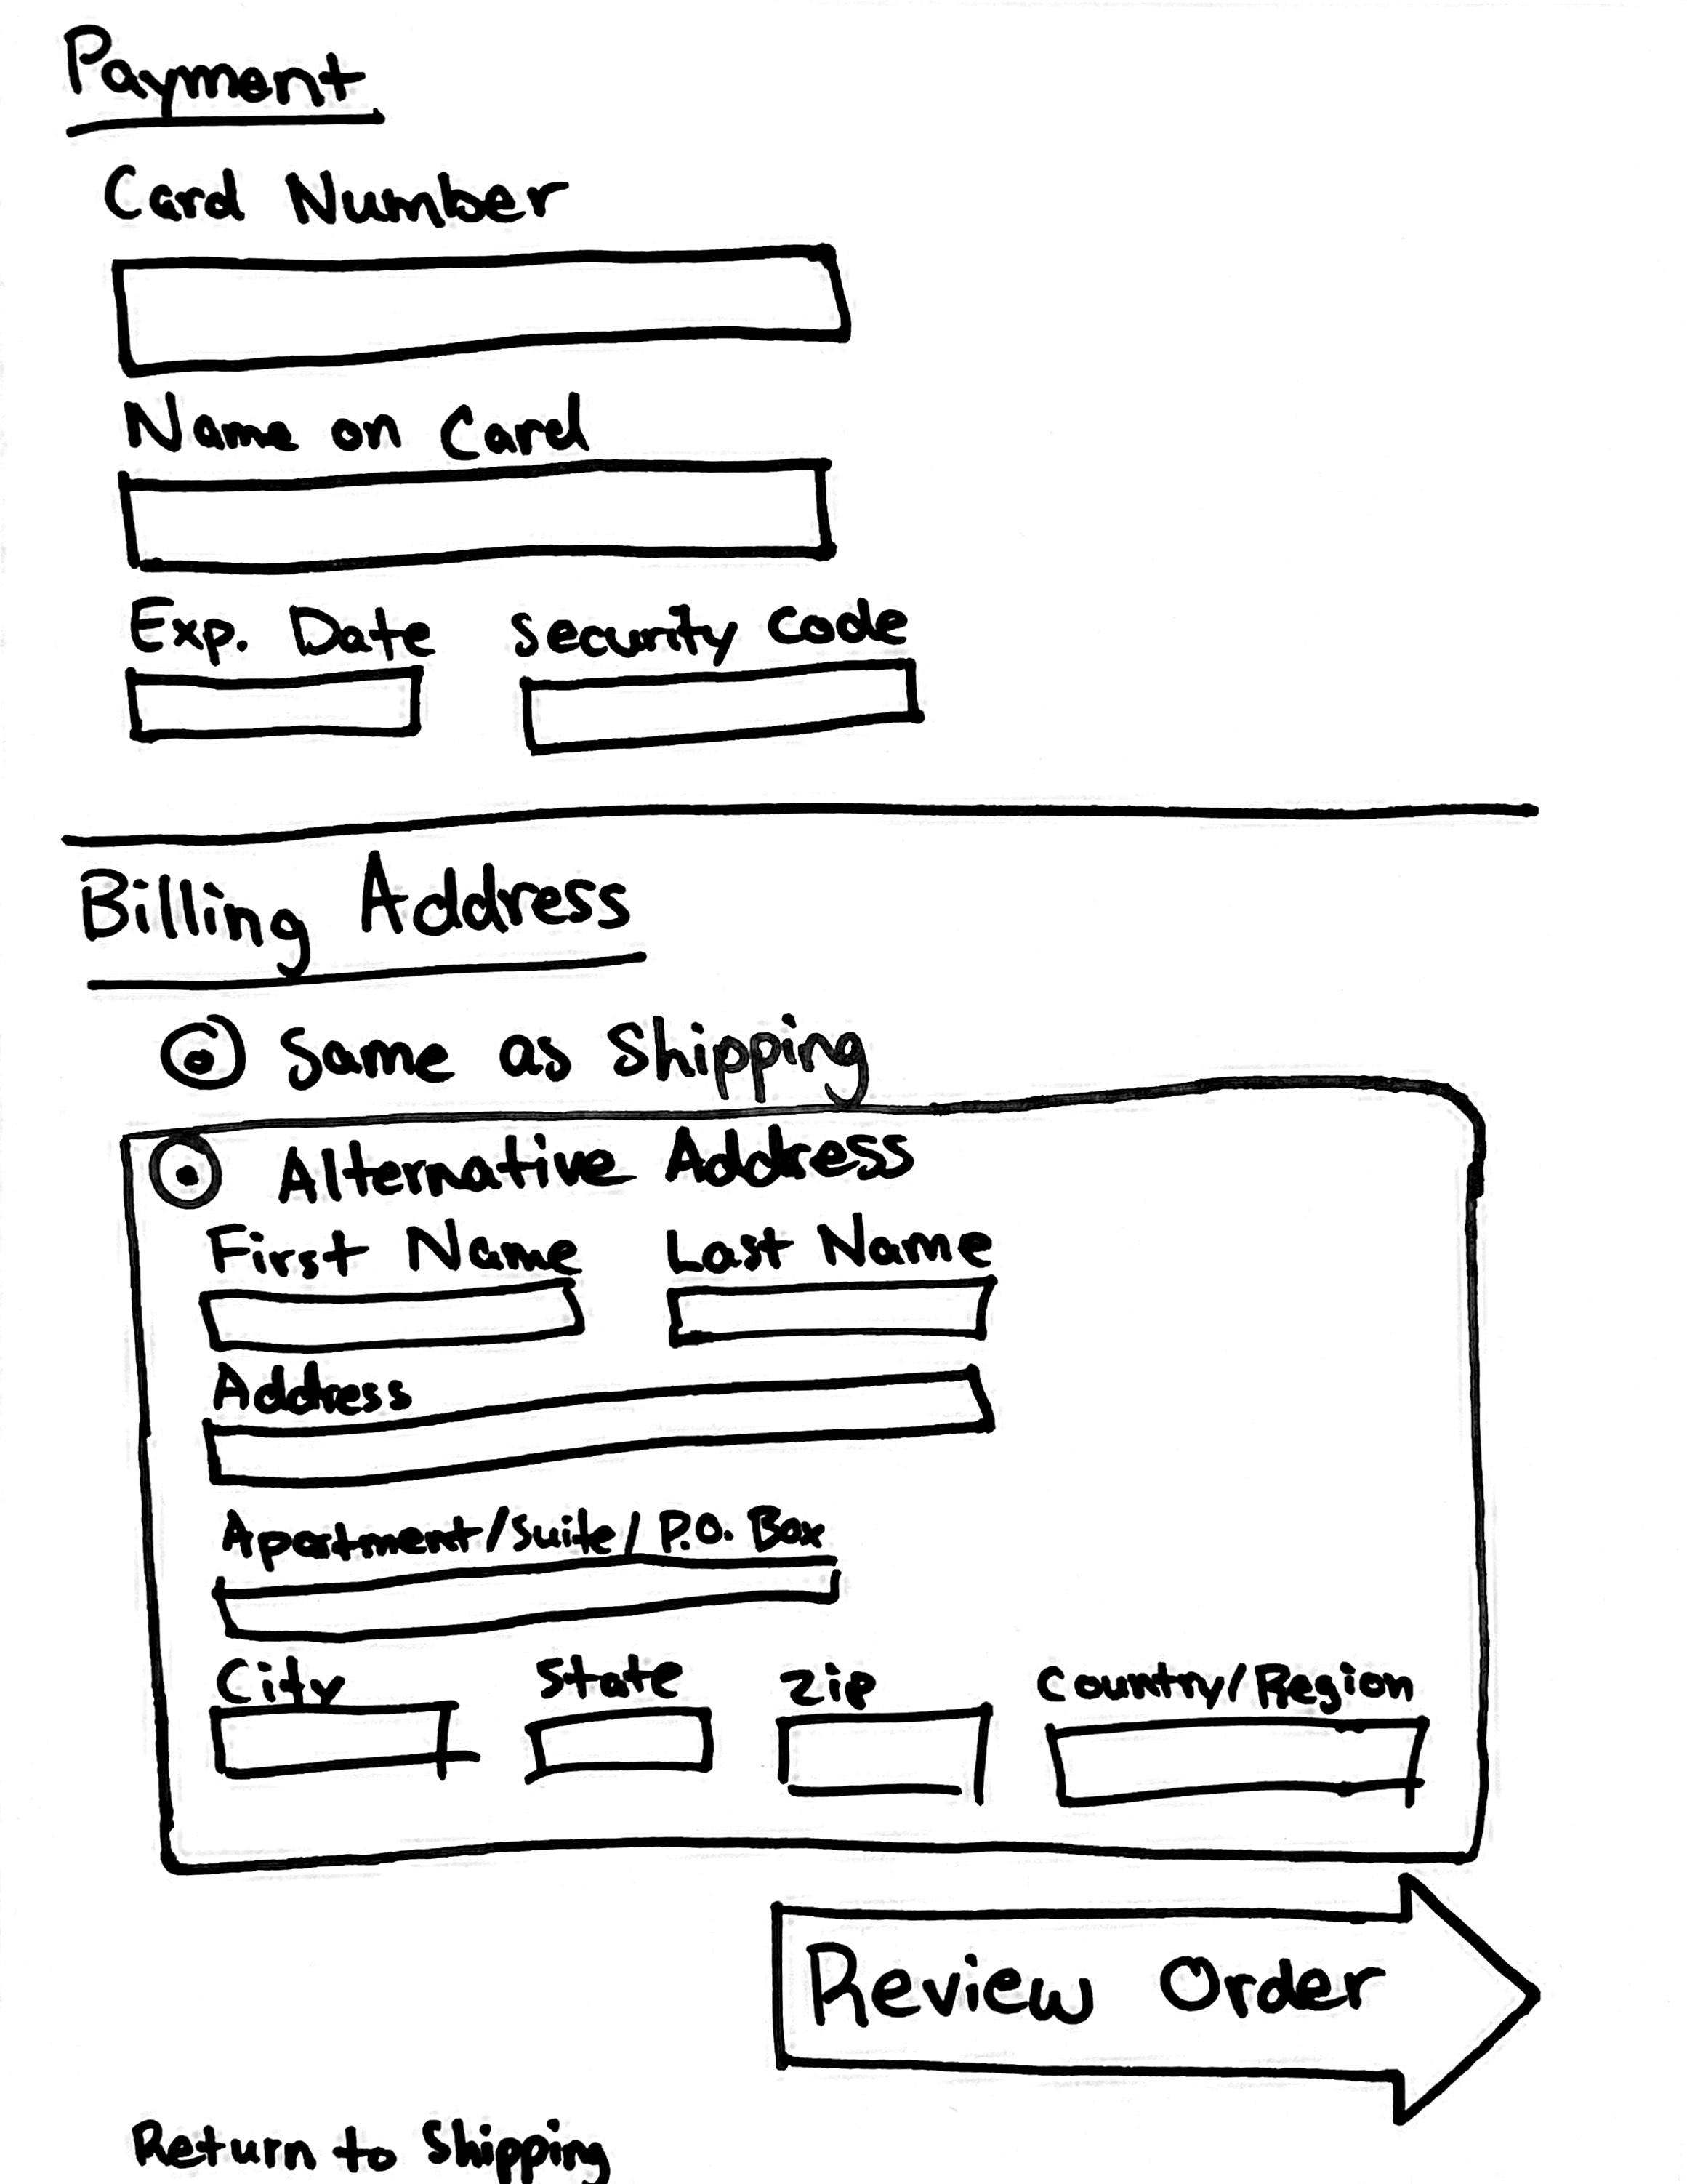 Payment
Card Number
Name on Card
Exp. Date Security Code
Billing Address
Same as Shipping
Alternative Address
First Name Last Name
Address
Apartment/Suite/P.O. Box
City State Zip Country/Region
Review Order
Return to Shipping